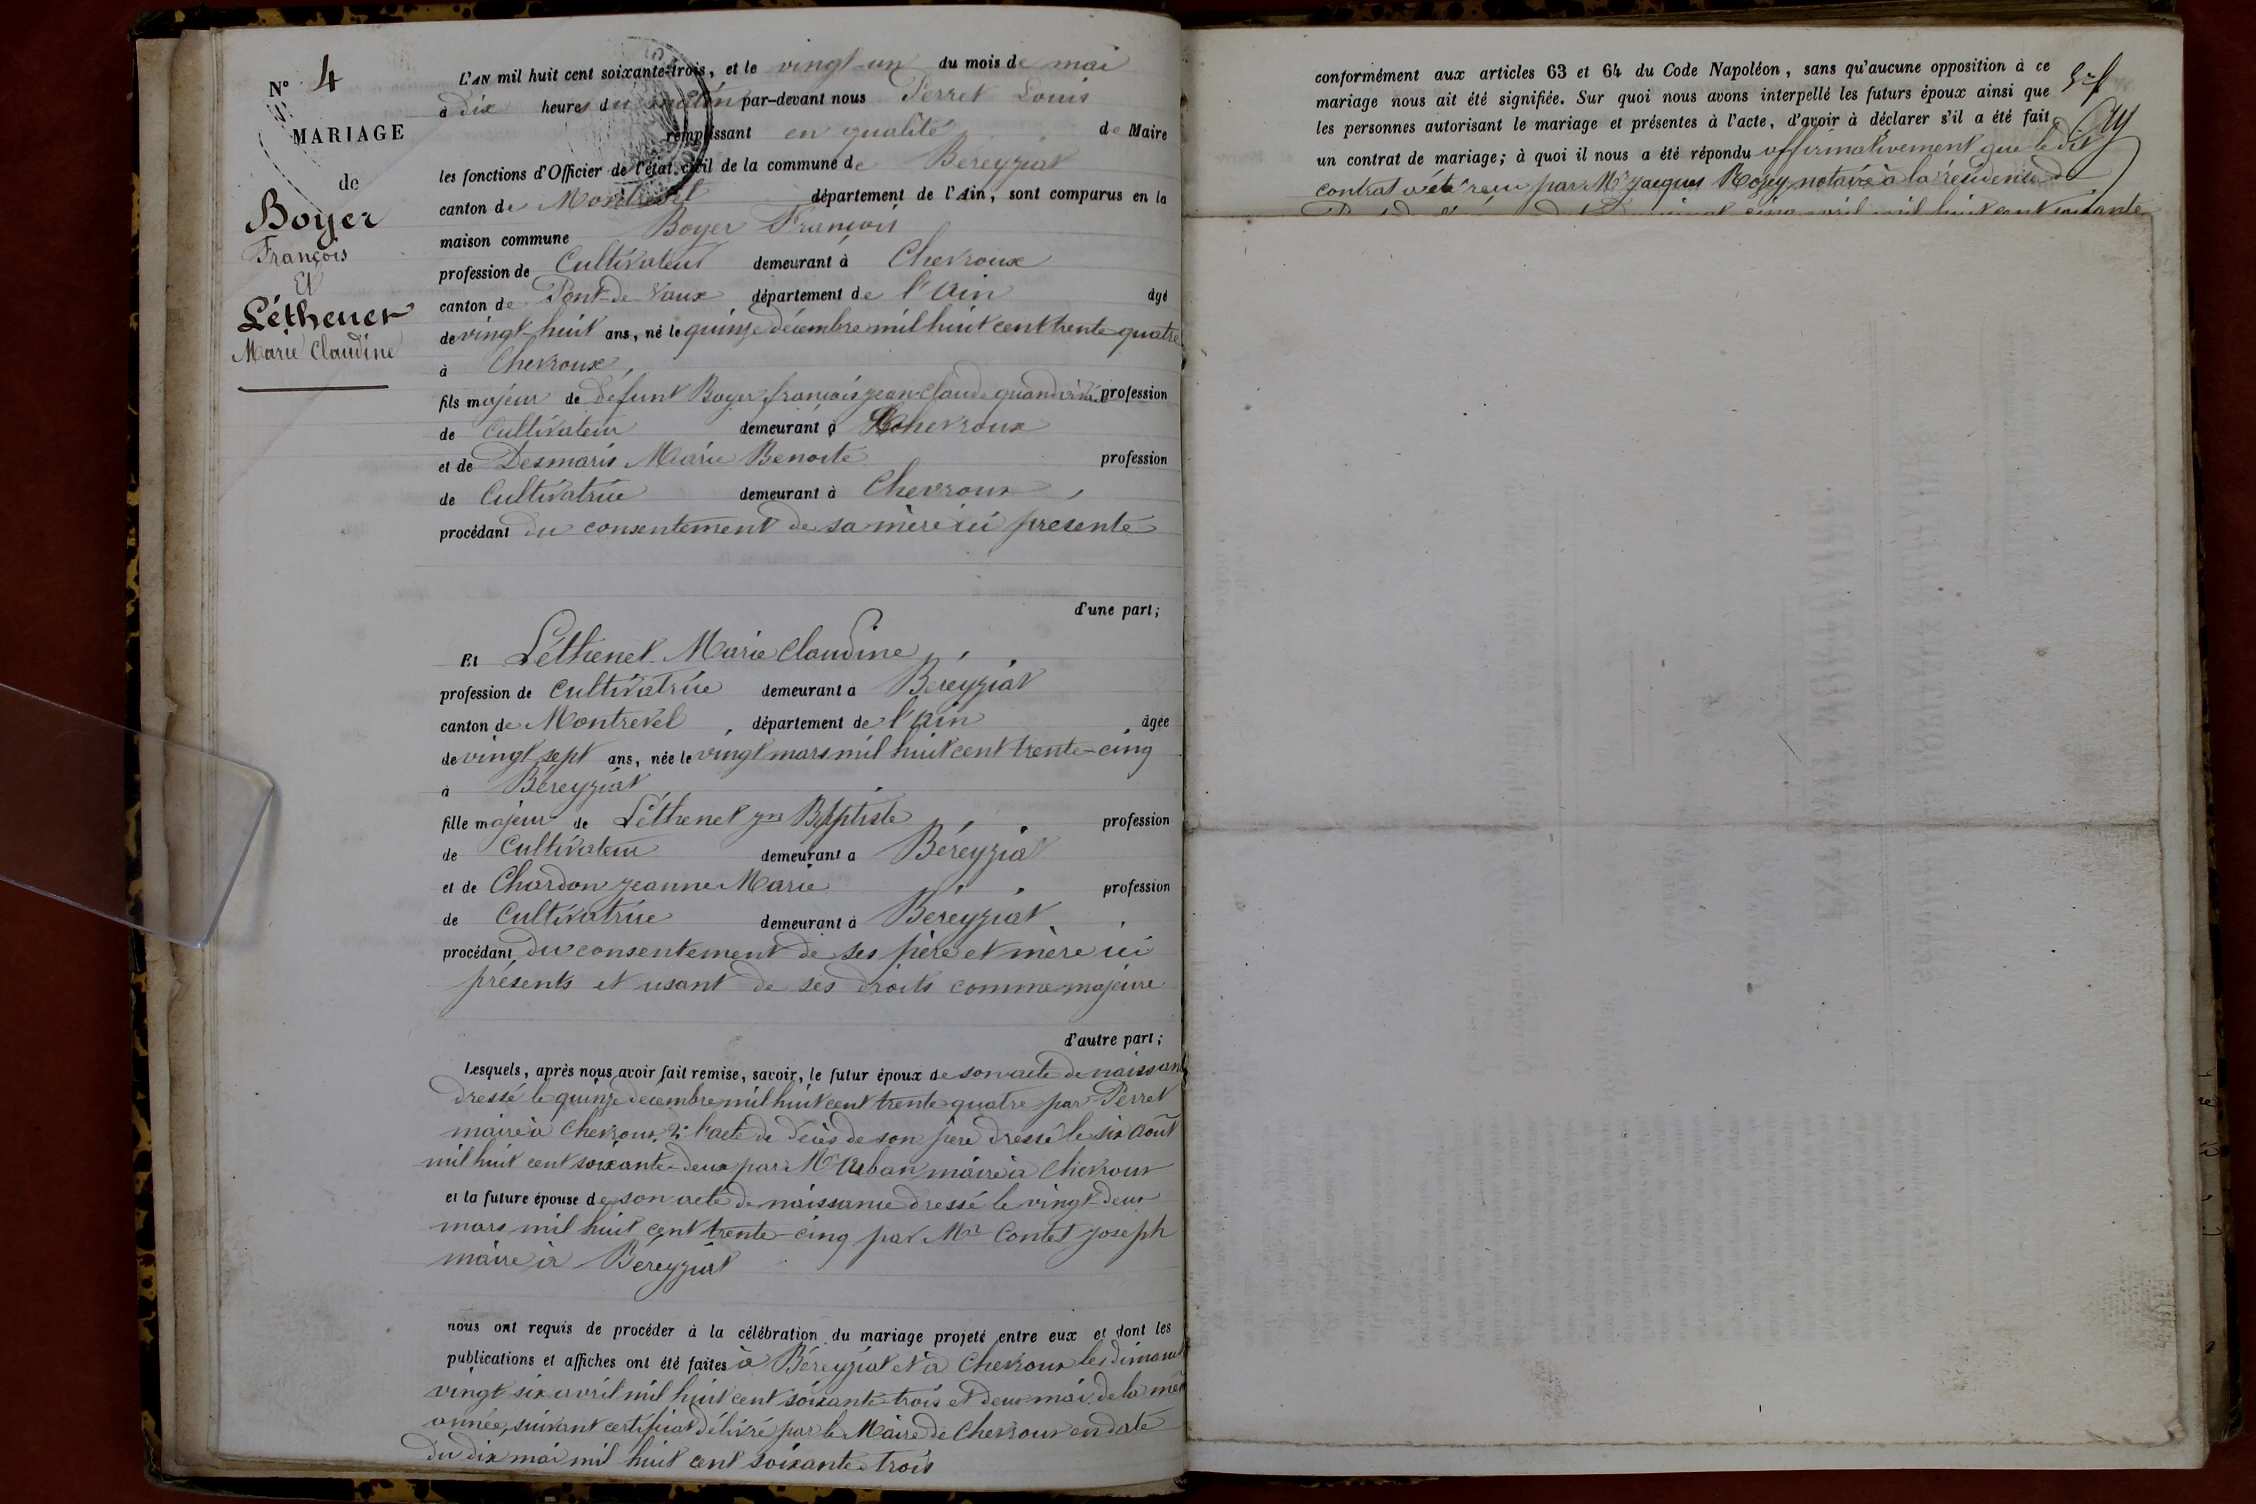 N° 4
MARIAGE
de
Boyer
François
Et
Léthenet
Marie Claudine
L'AN mil huit cent soixante-trois, et le vingt-un du mois de mai
à dix heures du matin par-devant nous Perret Louis
remplissant en qualité de Maire
les fonctions d'Officier de l'état-civil de la commune de Béreyziat
canton de Montrevel département de l'Ain, sont comparus en la
maison commune Boyer François
profession de Cultivateur demeurant à Chevroux
canton de Pont-de-Vaux département de l'Ain âgé
de vingt-huit ans, né le quinze décembre mil huit cent trente-quatre
à Chevroux
fils majeur de défunt Boyer françois jean-Claude quand vivait profession
de cultivateur demeurant à Chevroux
et de Desmaris Marie Benoite profession
de Cultivatrice demeurant à Chevroux
procédant du consentement de sa mère ici présente
d'une part;
Et Léthenet Marie Claudine
profession de Cultivatrice demeurant à Béreyziat
canton de Montrevel département de l'Ain âgée
de vingt sept ans, née le vingt mars mil huit cent trente-cinq
à Béreyziat
fille majeur de Léthenet Jn Baptiste profession
de Cultivateur demeurant à Béreyziat
et de Chardon jeanne Marie profession
de Cultivatrice demeurant à Béreyziat
procédant du consentement de ses père et mère ici
présents et usant de ses droits comme majeure
d'autre part;
Lesquels, après nous avoir fait remise, savoir, le futur époux de son acte de naissance
dressé le quinze décembre mil huit cent trente quatre par Perret
maire à Chevroux, 2° l'acte de décès de son père dressé le six Août
mil huit cent soixante-deux par Mr Urban maire à Chevroux
et la future épouse de son acte de naissance dressé le vingt-deux
mars mil huit cent trente-cinq par Mr Contet joseph
maire à Béreyziat
nous ont requis de procéder à la célébration du mariage projeté entre eux et dont les
publications et affiches ont été faites à Béreyziat et à Chevroux les dimanches
vingt six avril mil huit cent soixante trois et deux mai de la même
année, suivant certificat délivré par le Maire de Chevroux en date
du dix mai mil huit cent soixante-trois
conformément aux articles 63 et 64 du Code Napoléon, sans qu'aucune opposition à ce
mariage nous ait été signifiée. Sur quoi nous avons interpellé les futurs époux ainsi que
les personnes autorisant le mariage et présentes à l'acte, d'avoir à déclarer s'il a été fait
un contrat de mariage; à quoi il nous a été répondu affirmativement que le dit
contrat a été reçu par Mr jacques notaire à la résidence de
cinq avril mil huit cent soixante